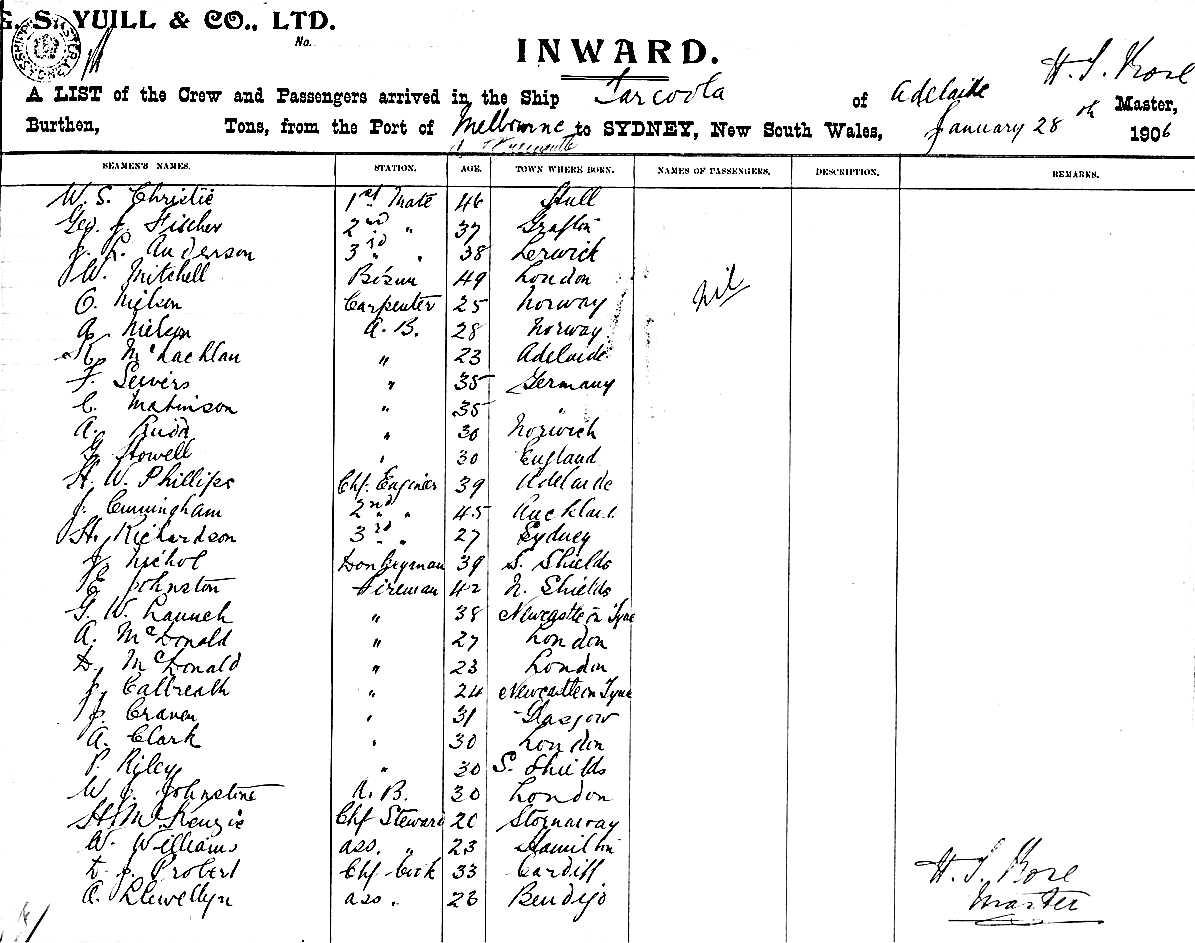 G. S. YUILL & CO., LTD.
No.
INWARD.
H. S. Rose
A LIST of the Crew and Passengers arrived in the Ship Tarcoola of Adelaide Master,
Burthen, Tons, from the Port of Melbourne to SYDNEY, New South Wales, January 28 th 1906
SEAMEN'S NAMES. STATION. AGE. TOWN WHERE BORN. NAMES OF PASSENGERS. DESCRIPTION. REMARKS.
W. S. Christie 1st Mate 46 Hull
Geo. J. Fischer 2nd " 37 Grafton
J. L. Anderson 3rd " " 38 Lerwick
W. Mitchell Bosun 49 London
O. Nilson Carpenter 25 Norway Nil
A. Nielson A. B. 28 Norway
McLachlan " 23 Adelaide
F. Seivers " 35 Germany
C. Matinson " 35 "
A. Rudd " 30 Norwich
G. Howell " 30 England
H. W. Phillips Chf. Enginer 39 Adelaide
J. Cunningham 2nd " " 45
H. Richardson 3rd " " 27 Sydney
J. Nichol Donkeyman 39 S. Shields
E. Johnston Fireman 42 N. Shields
G. W. Launch " 38 Newcastle on Tyne
A. McDonald " 27 London
D. McDonald " 23 London
J. Calbreath " 24 Newcastle on Tyne
J. Craven " 31 Glasgow
A. Clark " 30 London
P. Riley " 30 S. Shields
W. J. Johnstone A. B. 30 London
H. McKenzie Chf Steward 20 Stornaway
W. Williams ass. " 23 Hamilton
D. J. Probert Chf Cook 33 Cardiff H. S. Rose
A. Llewellyn ass. 26 Bendigo Master